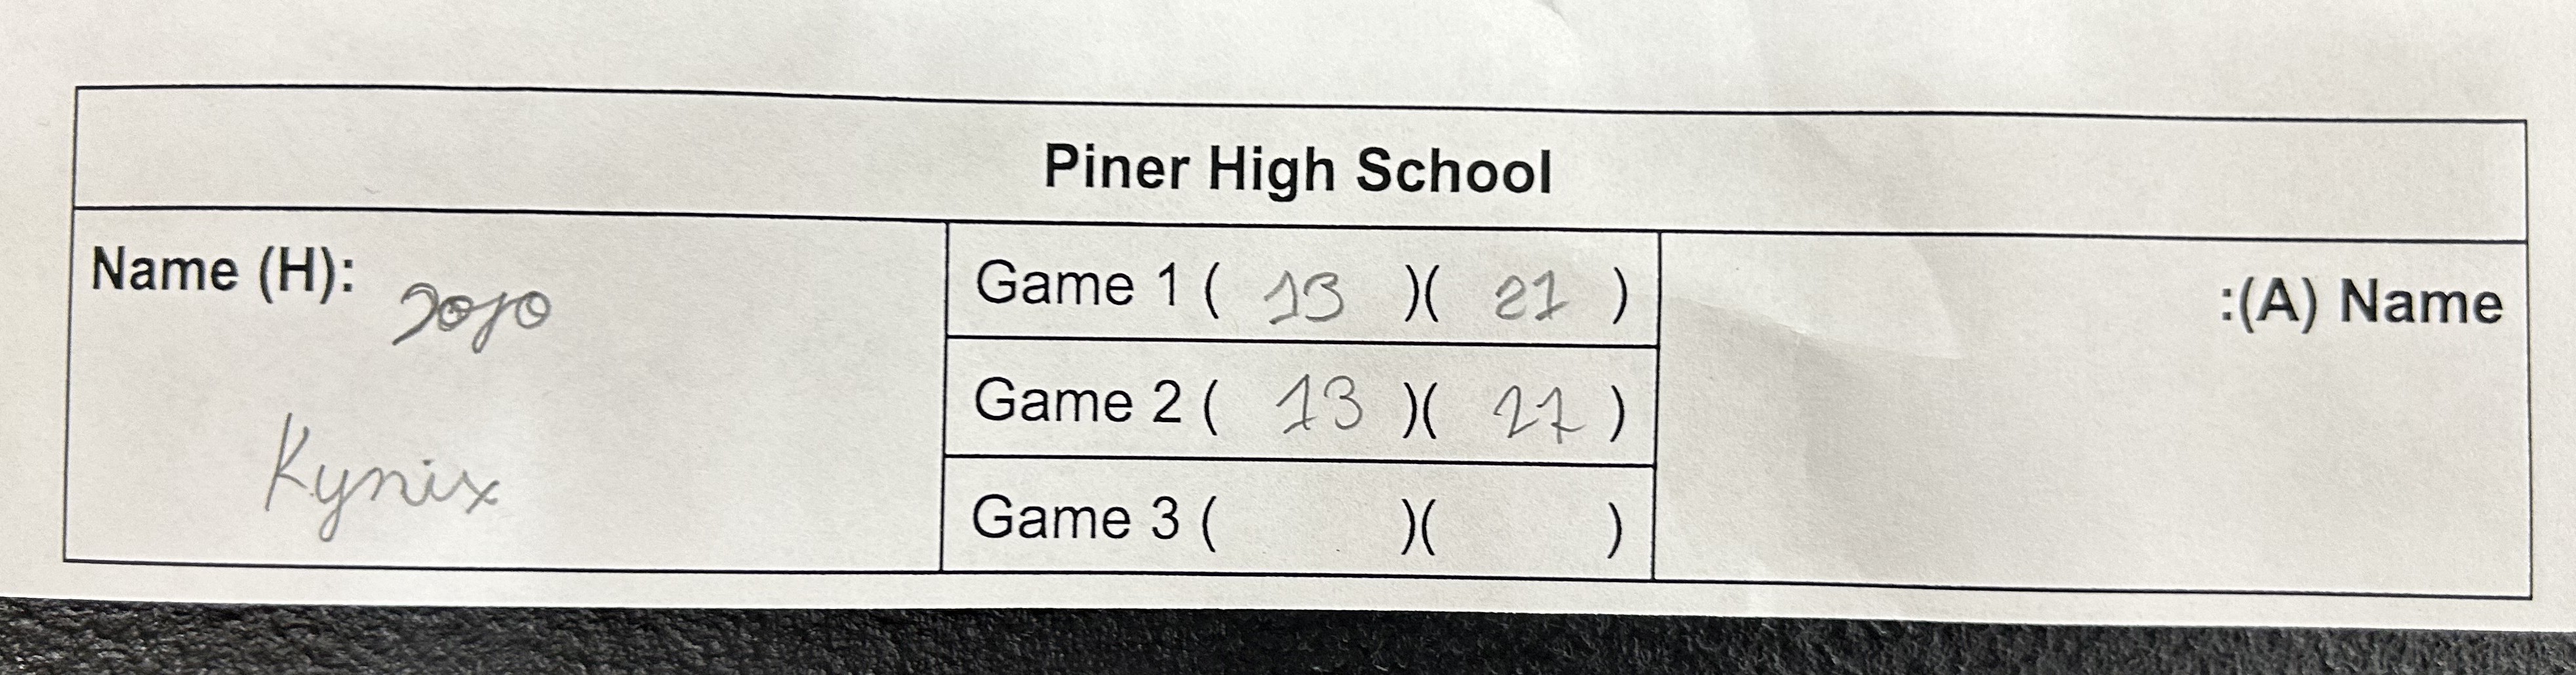 Piner High School
Name (H): Jojo
Kynix
Game 1 ( 13 )( 21 )
Game 2 ( 13 )( 21 )
Game 3 ( )( )
:(A) Name